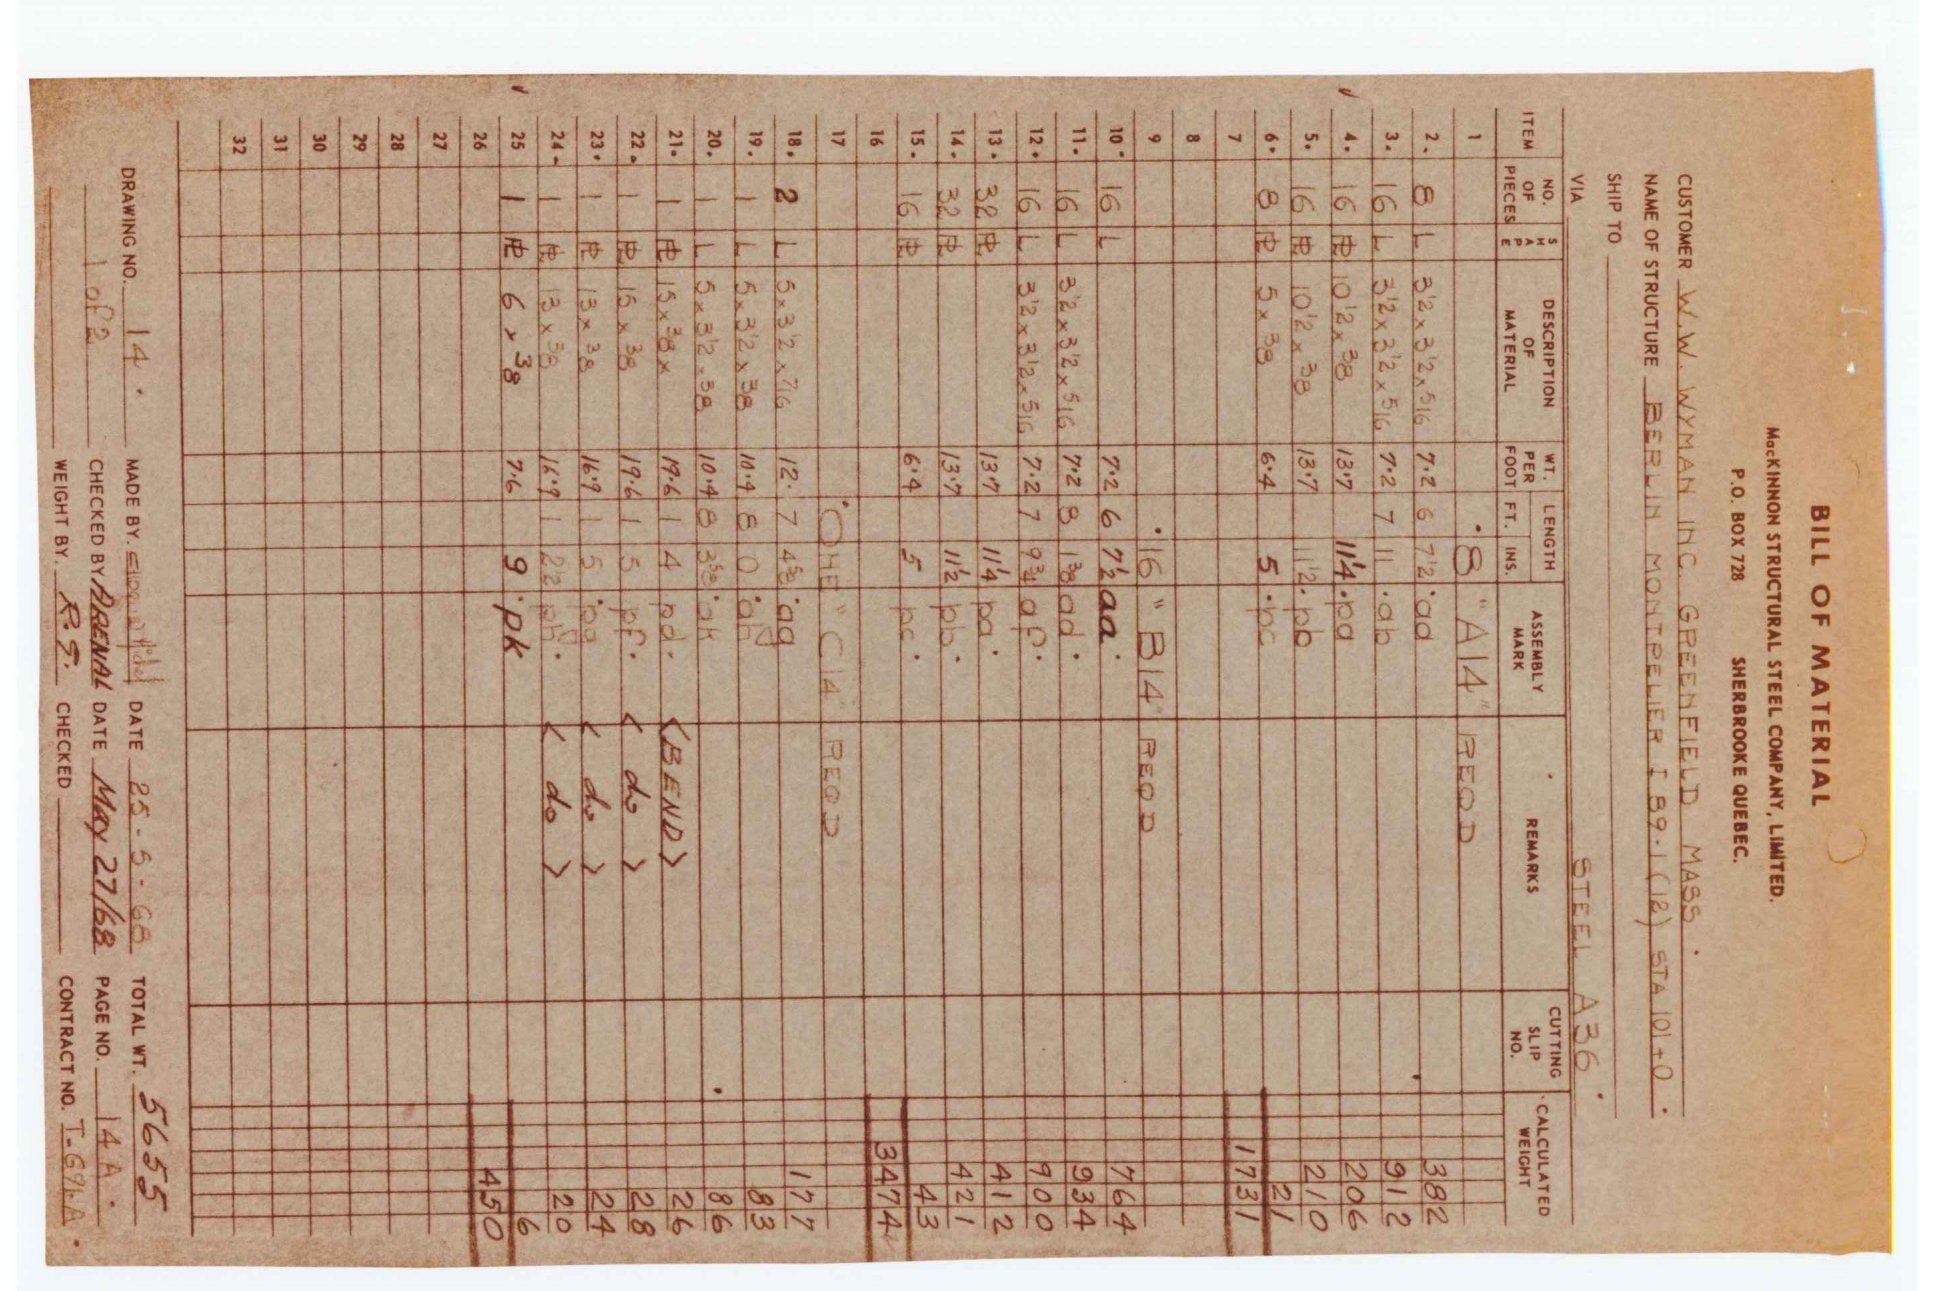 BILL OF MATERIAL
MacKINNON STRUCTURAL STEEL COMPANY, LIMITED.
P.O. BOX 728 SHERBROOKE QUEBEC.
CUSTOMER W.W. WYMAN INC GREENFIELD MASS.
NAME OF STRUCTURE BERLIN MONTPELIER I 89-1(12) STA 101+0.
SHIP TO
VIA STEEL A36.
ITEM NO. OF PIECES SHAPE DESCRIPTION OF MATERIAL WT. PER FOOT LENGTH FT. INS. ASSEMBLY MARK REMARKS CUTTING SLIP NO. CALCULATED WEIGHT
1 8 "A14" REQD
2. 8 L 3½ x 3½ x 5/16 7.2 6 7½ aa 382
3. 16 L 3½ x 3½ x 5/16 7.2 7 11 ab 912
4. 16 PL 10½ x 3/8 13.7 11¼ pa 206
5. 16 PL 10½ x 3/8 13.7 11½ pb 210
6. 8 PL 5 x 3/8 6.4 5 pc 21
7 1731
8
9 16 "B14" REQD
10. 16 L 7.2 6 7½ aa. 764
11. 16 L 3½ x 3½ x 5/16 7.2 8 1 3/8 ad. 934
12. 16 L 3½ x 3½ x 5/16 7.2 7 9¾ af. 900
13. 32 PL 13.7 11¼ pa. 412
14. 32 PL 13.7 11½ pb. 421
15. 16 PL 6.4 5 pc. 43
16 3474
17 ONE "C14" REQD
18. 2 L 5 x 3½ x 7/16 12. 7 4 5/8 ag 177
19. 1 L 5 x 3½ x 3/8 10.4 8 0 ah 83
20. 1 L 5 x 3½ x 3/8 10.4 8 3 5/8 ak 86
21. 1 PL 15 x 3/8 x 19.6 1 4 pd. <BEND> 26
22. 1 PL 15 x 3/8 19.6 1 5 pf. < do > 28
23. 1 PL 13 x 3/8 16.9 1 5 pg < do > 24
24. 1 PL 13 x 3/8 16.9 1 2½ ph. < do > 20
25 1 PL 6 x 3/8 7.6 9 pk 6
26 450
27
28
29
30
31
32
DRAWING NO. 14. MADE BY. DATE 25-5-68 TOTAL WT. 5655
1 of 2 CHECKED BY ARENAL DATE May 27/68 PAGE NO. 14 A.
WEIGHT BY. R.S. CHECKED CONTRACT NO.